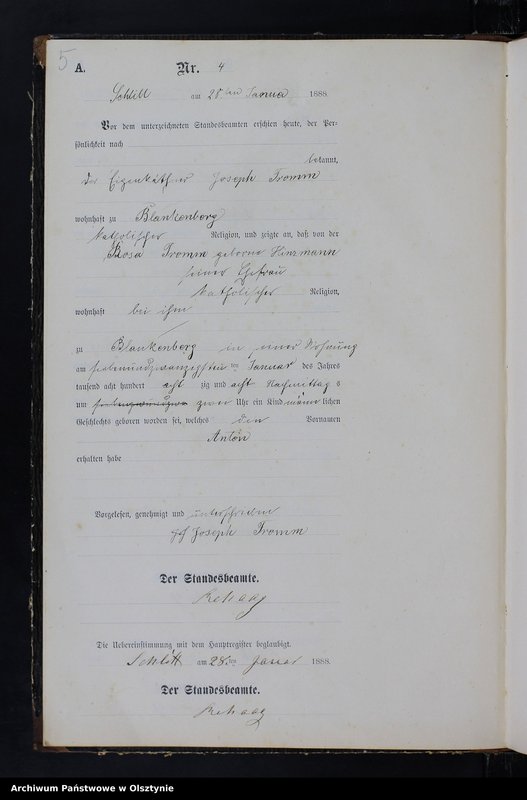 5
A. Nr. 4
Schlitt am 28ten Januar 1888.
Vor dem unterzeichneten Standesbeamten erschien heute, der Per-
sönlichkeit nach
bekannt,
der Eigenkäthner Joseph Fromm
wohnhaft zu Blankenberg
katholischer Religion, und zeigte an, daß von der
Rosa Fromm geborne Hinzmann
seiner Ehefrau
katholischer Religion,
wohnhaft bei ihm
zu Blankenberg in seiner Wohnung
am siebenundzwanzigsten ten Januar des Jahres
tausend acht hundert acht zig und acht Nachmittag s
um zwei Uhr ein Kind männ lichen
Geschlechts geboren worden sei, welches den Vornamen
Anton
erhalten habe
Vorgelesen, genehmigt und unterschrieben
gez Joseph Fromm
Der Standesbeamte.
Rehaag
Die Uebereinstimmung mit dem Hauptregister beglaubigt.
Schlitt am 28ten Januar 1888.
Der Standesbeamte.
Rehaag
Archiwum Państwowe w Olsztynie